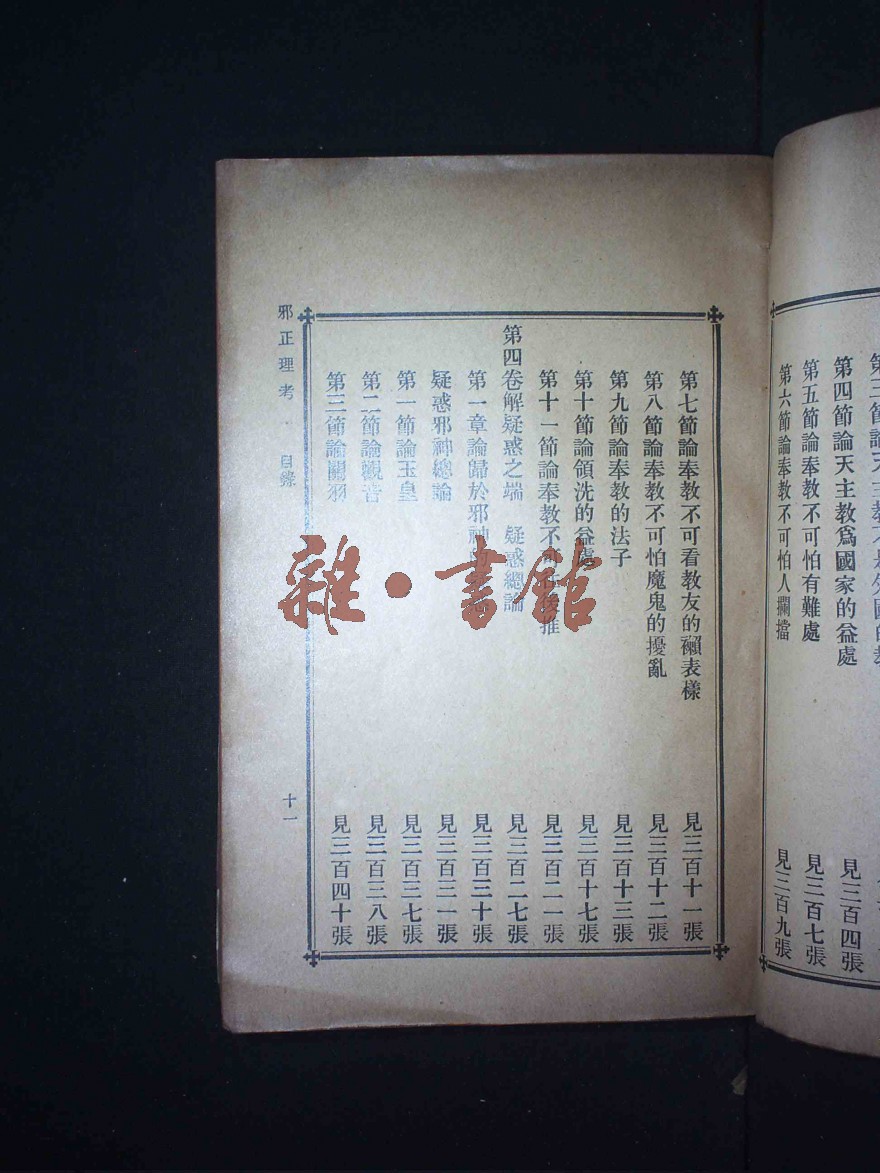 第四節論天主教爲國家的益處 見三百四張
第五節論奉教不可怕有難處 見三百七張
第六節論奉教不可怕人攔擋 見三百九張
第七節論奉教不可看教友的賴表樣 見三百十一張
第八節論奉教不可怕魔鬼的擾亂 見三百十二張
第九節論奉教的法子 見三百十三張
第十節論領洗的益處 見三百十七張
第十一節論奉教不可 推 見三百二一張
第四卷解疑惑之端 疑惑總論 見三百二七張
第一章論歸於邪神 見三百三十張
疑惑邪神總論 見三百三一張
第一節論玉皇 見三百三七張
第二節論觀音 見三百三八張
第三節論關羽 見三百四十張
邪正理考 目錄 十一
雜·書館